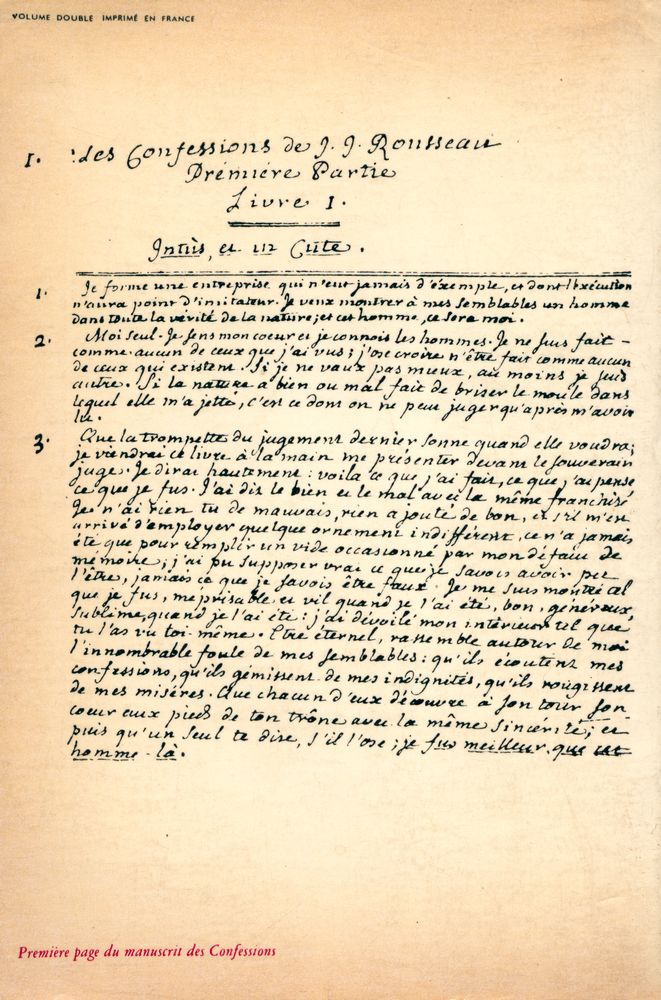 VOLUME DOUBLE IMPRIMÉ EN FRANCE
I. Les Confessions de J. J. Rousseau
Prémiére Partie
Livre I.
Intùs, et in Cute.
1. Je forme une entreprise qui n'eut jamais d'éxemple, et dont l'exécution
n'aura point d'imitateur. Je veux montrer à mes semblables un homme
dans toute la vérité de la nature; et cet homme, ce sera moi.
2. Moi seul. Je sens mon coeur et je connois les hommes. Je ne suis fait
comme aucun de ceux que j'ai vus; j'ose croire n'être fait comme aucun
de ceux qui existent. Si je ne vaux pas mieux, au moins je suis
autre. Si la nature a bien ou mal fait de briser le moule dans
lequel elle m'a jetté, c'est ce dont on ne peut juger qu'après m'avoir
lu.
3. Que la trompette du jugement dernier sonne quand elle voudra;
je viendrai ce livre à la main me présenter devant le souverain
juge. Je dirai hautement: voila ce que j'ai fait, ce que j'ai pensé
ce que je fus. J'ai dit le bien et le mal avec la même franchise
Je n'ai rien tu de mauvais, rien ajouté de bon, et s'il m'est
arrivé d'employer quelque ornement indifférent, ce n'a jamais
été que pour remplir un vide occasionné par mon défaut de
mémoire; j'ai pu supposer vrai ce que je savois avoir pu
l'être, jamais ce que je savois être faux. Je me suis montré tel
que je fus, méprisable et vil quand je l'ai été, bon, généreux
sublime, quand je l'ai été: j'ai dévoilé mon intérieur tel que
tu l'as vu toi-même. Etre éternel, rassemble autour de moi
l'innombrable foule de mes semblables: qu'ils écoutent mes
confessions, qu'ils gémissent de mes indignités, qu'ils rougissent
de mes miséres. Que chacun d'eux découvre à son tour son
coeur aux pieds de ton trône avec la même sincérité; et
puis qu'un seul te dise, s'il l'ose; je fus meilleur que cet
homme-là.
Première page du manuscrit des Confessions